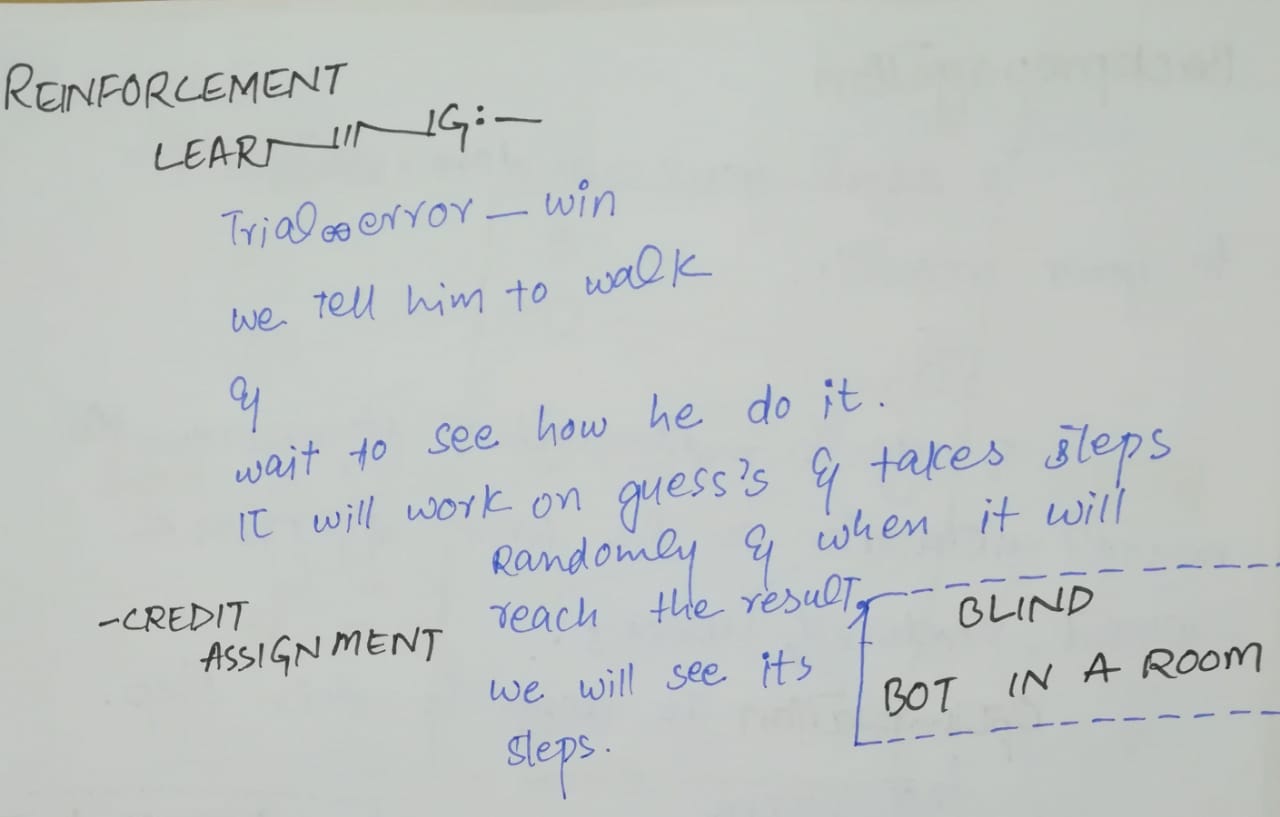 REINFORCEMENT
LEARNING:-
Trial error - win
we tell him to walk
&
wait to see how he do it.
It will work on guess's & takes steps
Randomly & when it will
reach the result,
we will see its
steps.
-CREDIT
ASSIGNMENT
BLIND
BOT IN A ROOM